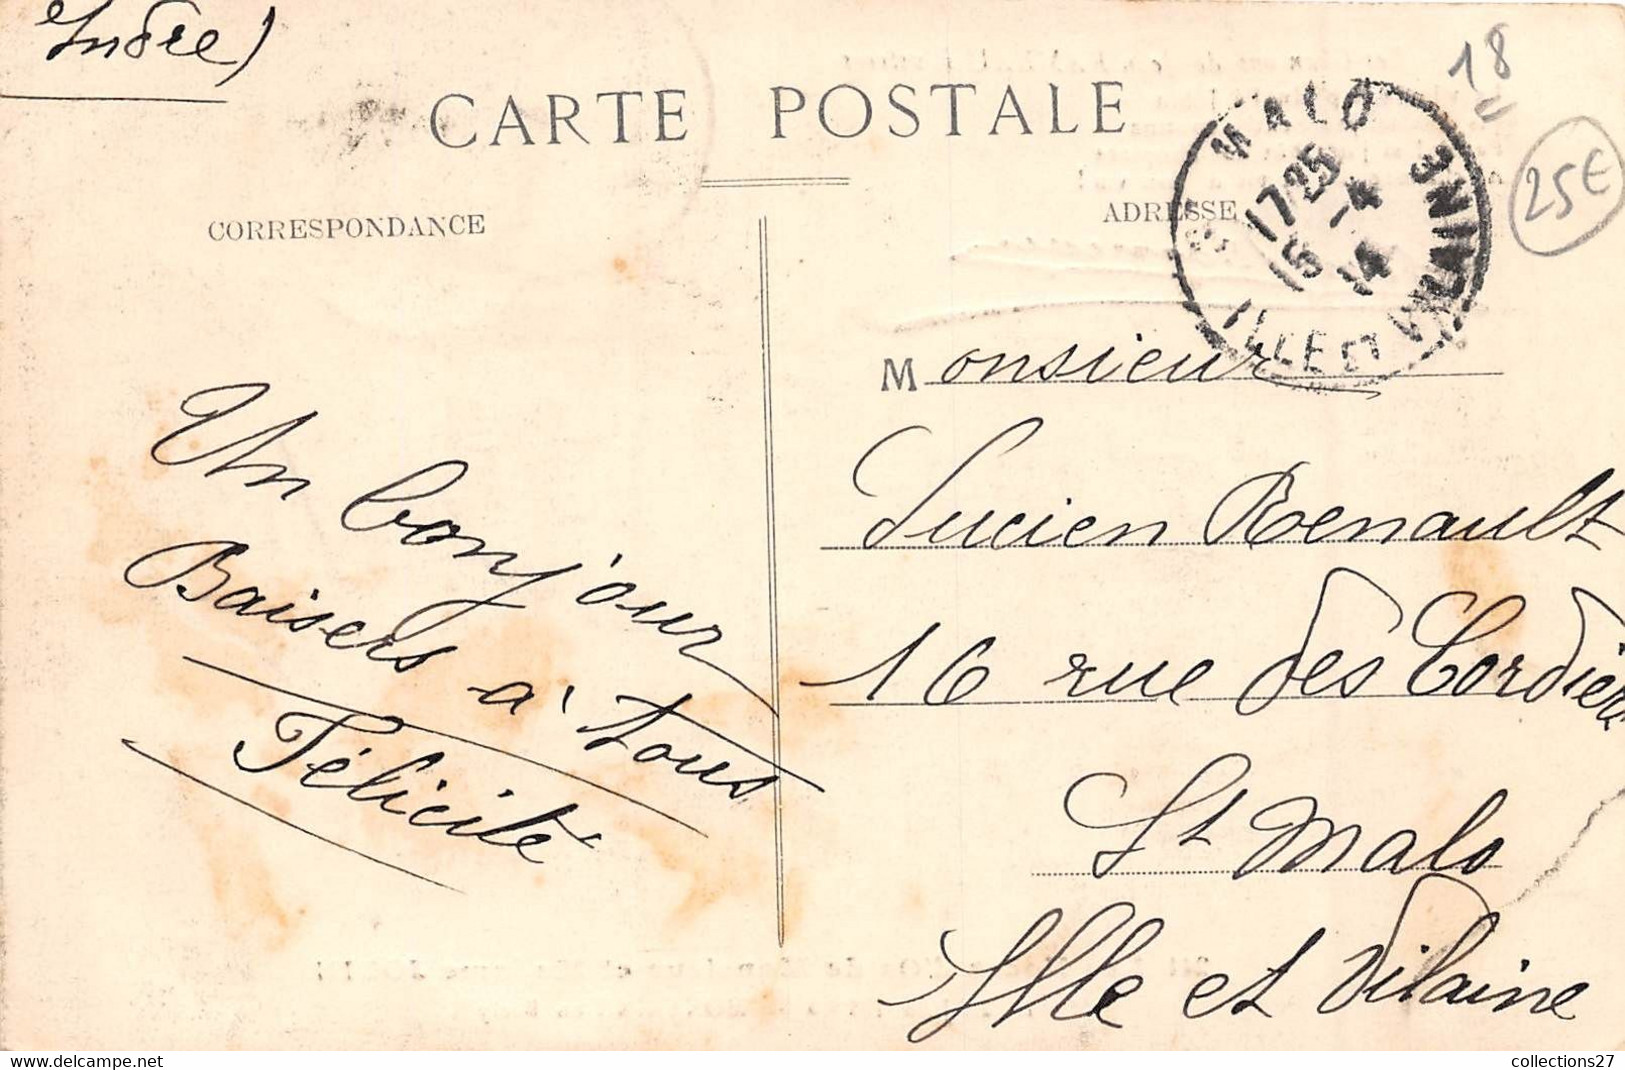 Indre)
CARTE POSTALE
18
25€
CORRESPONDANCE
ADRESSE
MALO
17*25
15 -4
14
ILLE ET VILAINE
Monsieur
Lucien Renault
16 rue des Cordiers
St Malo
Ille et Vilaine
Un bonjour
Baisers à tous
Félicité
collections27